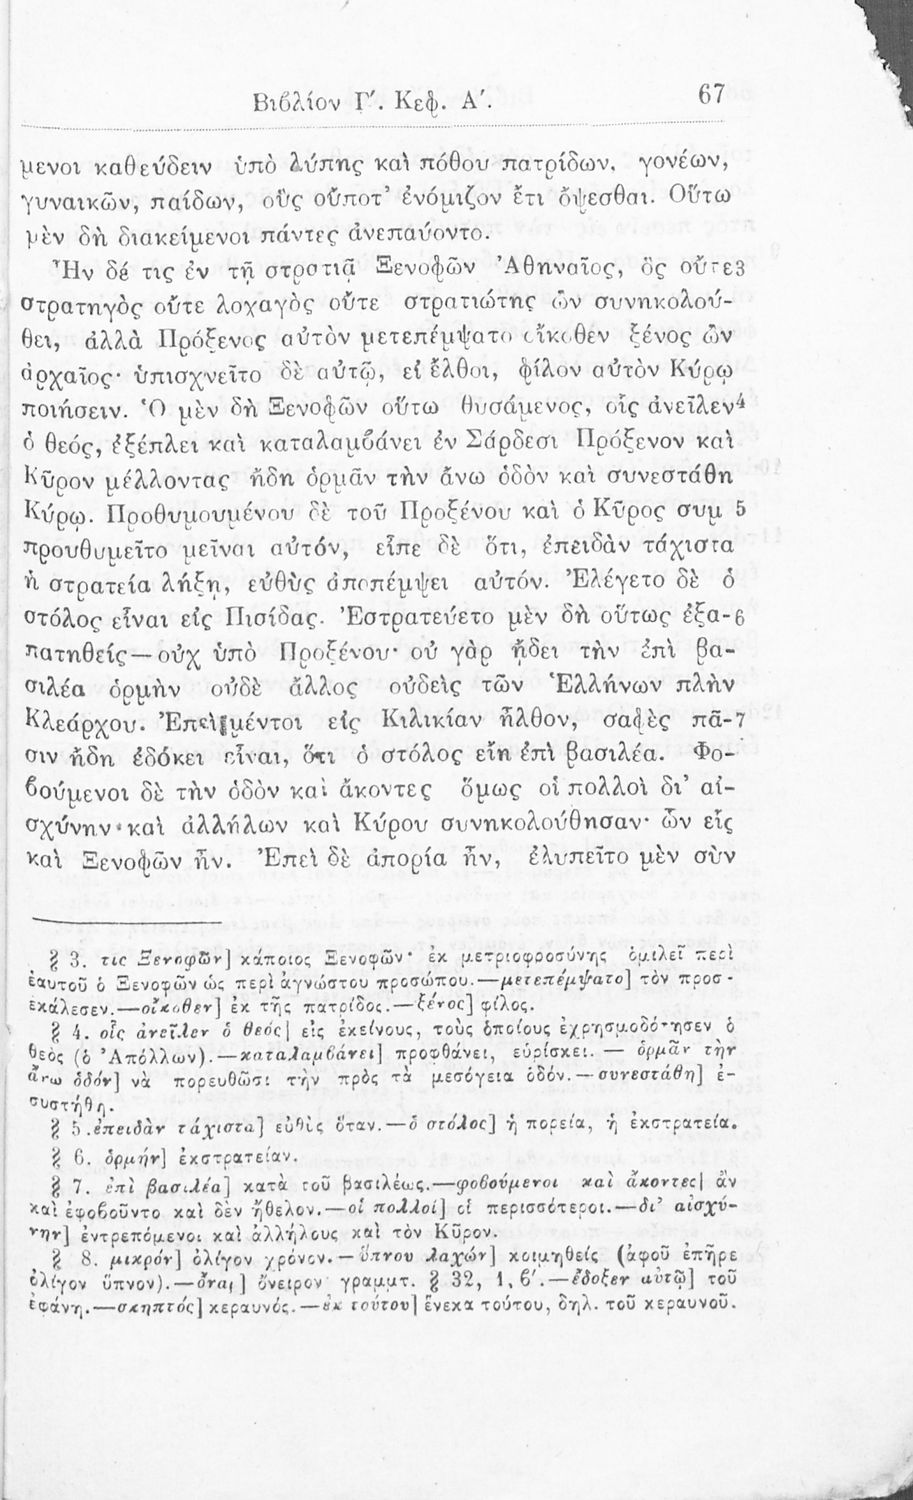 Βιβλίον Γ΄. Κεφ. Α΄. 67
μενοι καθεύδειν ὑπὸ λύπης καὶ πόθου πατρίδων, γονέων,
γυναικῶν, παίδων, οὓς οὔποτ’ ἐνόμιζον ἔτι ὄψεσθαι. Οὕτω
μὲν δὴ διακείμενοι πάντες ἀνεπαύοντο.
Ἦν δέ τις ἐν τῇ στρατιᾷ Ξενοφῶν Ἀθηναῖος, ὃς οὔτε 3
στρατηγὸς οὔτε λοχαγὸς οὔτε στρατιώτης ὢν συνηκολού-
θει, ἀλλὰ Πρόξενος αὐτὸν μετεπέμψατο οἴκοθεν ξένος ὢν
ἀρχαῖος· ὑπισχνεῖτο δὲ αὐτῷ, εἰ ἔλθοι, φίλον αὐτὸν Κύρῳ
ποιήσειν. Ὁ μὲν δὴ Ξενοφῶν οὕτω θυσάμενος, οἷς ἀνεῖλεν 4
ὁ θεός, ἐξέπλει καὶ καταλαμβάνει ἐν Σάρδεσι Πρόξενον καὶ
Κῦρον μέλλοντας ἤδη ὁρμᾶν τὴν ἄνω ὁδὸν καὶ συνεστάθη
Κύρῳ. Προθυμουμένου δὲ τοῦ Προξένου καὶ ὁ Κῦρος συμ 5
προυθυμεῖτο μεῖναι αὐτόν, εἶπε δὲ ὅτι, ἐπειδὰν τάχιστα
ἡ στρατεία λήξῃ, εὐθὺς ἀποπέμψει αὐτόν. Ἐλέγετο δὲ ὁ
στόλος εἶναι εἰς Πισίδας. Ἐστρατεύετο μὲν δὴ οὕτως ἐξα- 6
πατηθείς—οὐχ ὑπὸ Προξένου· οὐ γὰρ ᾔδει τὴν ἐπὶ βα-
σιλέα ὁρμὴν οὐδὲ ἄλλος οὐδεὶς τῶν Ἑλλήνων πλὴν
Κλεάρχου. Ἐπεὶ μέντοι εἰς Κιλικίαν ἦλθον, σαφὲς πᾶ- 7
σιν ἤδη ἐδόκει εἶναι, ὅτι ὁ στόλος εἴη ἐπὶ βασιλέα. Φο-
βούμενοι δὲ τὴν ὁδὸν καὶ ἄκοντες ὅμως οἱ πολλοὶ δι’ αἰ-
σχύνην καὶ ἀλλήλων καὶ Κύρου συνηκολούθησαν· ὧν εἷς
καὶ Ξενοφῶν ἦν. Ἐπεὶ δὲ ἀπορία ἦν, ἐλυπεῖτο μὲν σὺν
§ 3. τις Ξενοφῶν] κάποιος Ξενοφῶν· ἐκ μετριοφροσύνης ὁμιλεῖ περὶ
ἑαυτοῦ ὁ Ξενοφῶν ὡς περὶ ἀγνώστου προσώπου.—μετεπέμψατο] τὸν προσ-
εκάλεσεν.—οἴκοθεν] ἐκ τῆς πατρίδος.—ξένος] φίλος.
§ 4. οἷς ἀνεῖλεν ὁ θεός] εἰς ἐκείνους, τοὺς ὁποίους ἐχρησμοδότησεν ὁ
θεὸς (ὁ Ἀπόλλων).—καταλαμβάνει] προφθάνει, εὑρίσκει. — ὁρμᾶν τὴν
ἄνω ὁδόν] νὰ πορευθῶσι τὴν πρὸς τὰ μεσόγεια ὁδόν.—συνεστάθη] ἐ-
συστήθη.
§ 5. ἐπειδὰν τάχιστα] εὐθὺς ὅταν.—ὁ στόλος] ἡ πορεία, ἡ ἐκστρατεία.
§ 6. ὁρμήν] ἐκστρατείαν.
§ 7. ἐπὶ βασιλέα] κατὰ τοῦ βασιλέως.—φοβούμενοι καὶ ἄκοντες] ἂν
καὶ ἐφοβοῦντο καὶ δὲν ἤθελον.—οἱ πολλοί] οἱ περισσότεροι.—δι’ αἰσχύ-
νην] ἐντρεπόμενοι καὶ ἀλλήλους καὶ τὸν Κῦρον.
§ 8. μικρόν] ὀλίγον χρόνον.—ὕπνου λαχών] κοιμηθείς (ἀφοῦ ἐπῆρε
ὀλίγον ὕπνον).—ὄναρ] ὄνειρον γραμματ. § 32, 1, β΄.—ἔδοξεν αὐτῷ] τοῦ
ἐφάνη.—σκηπτός] κεραυνός.—ἐκ τούτου] ἕνεκα τούτου, δηλ. τοῦ κεραυνοῦ.